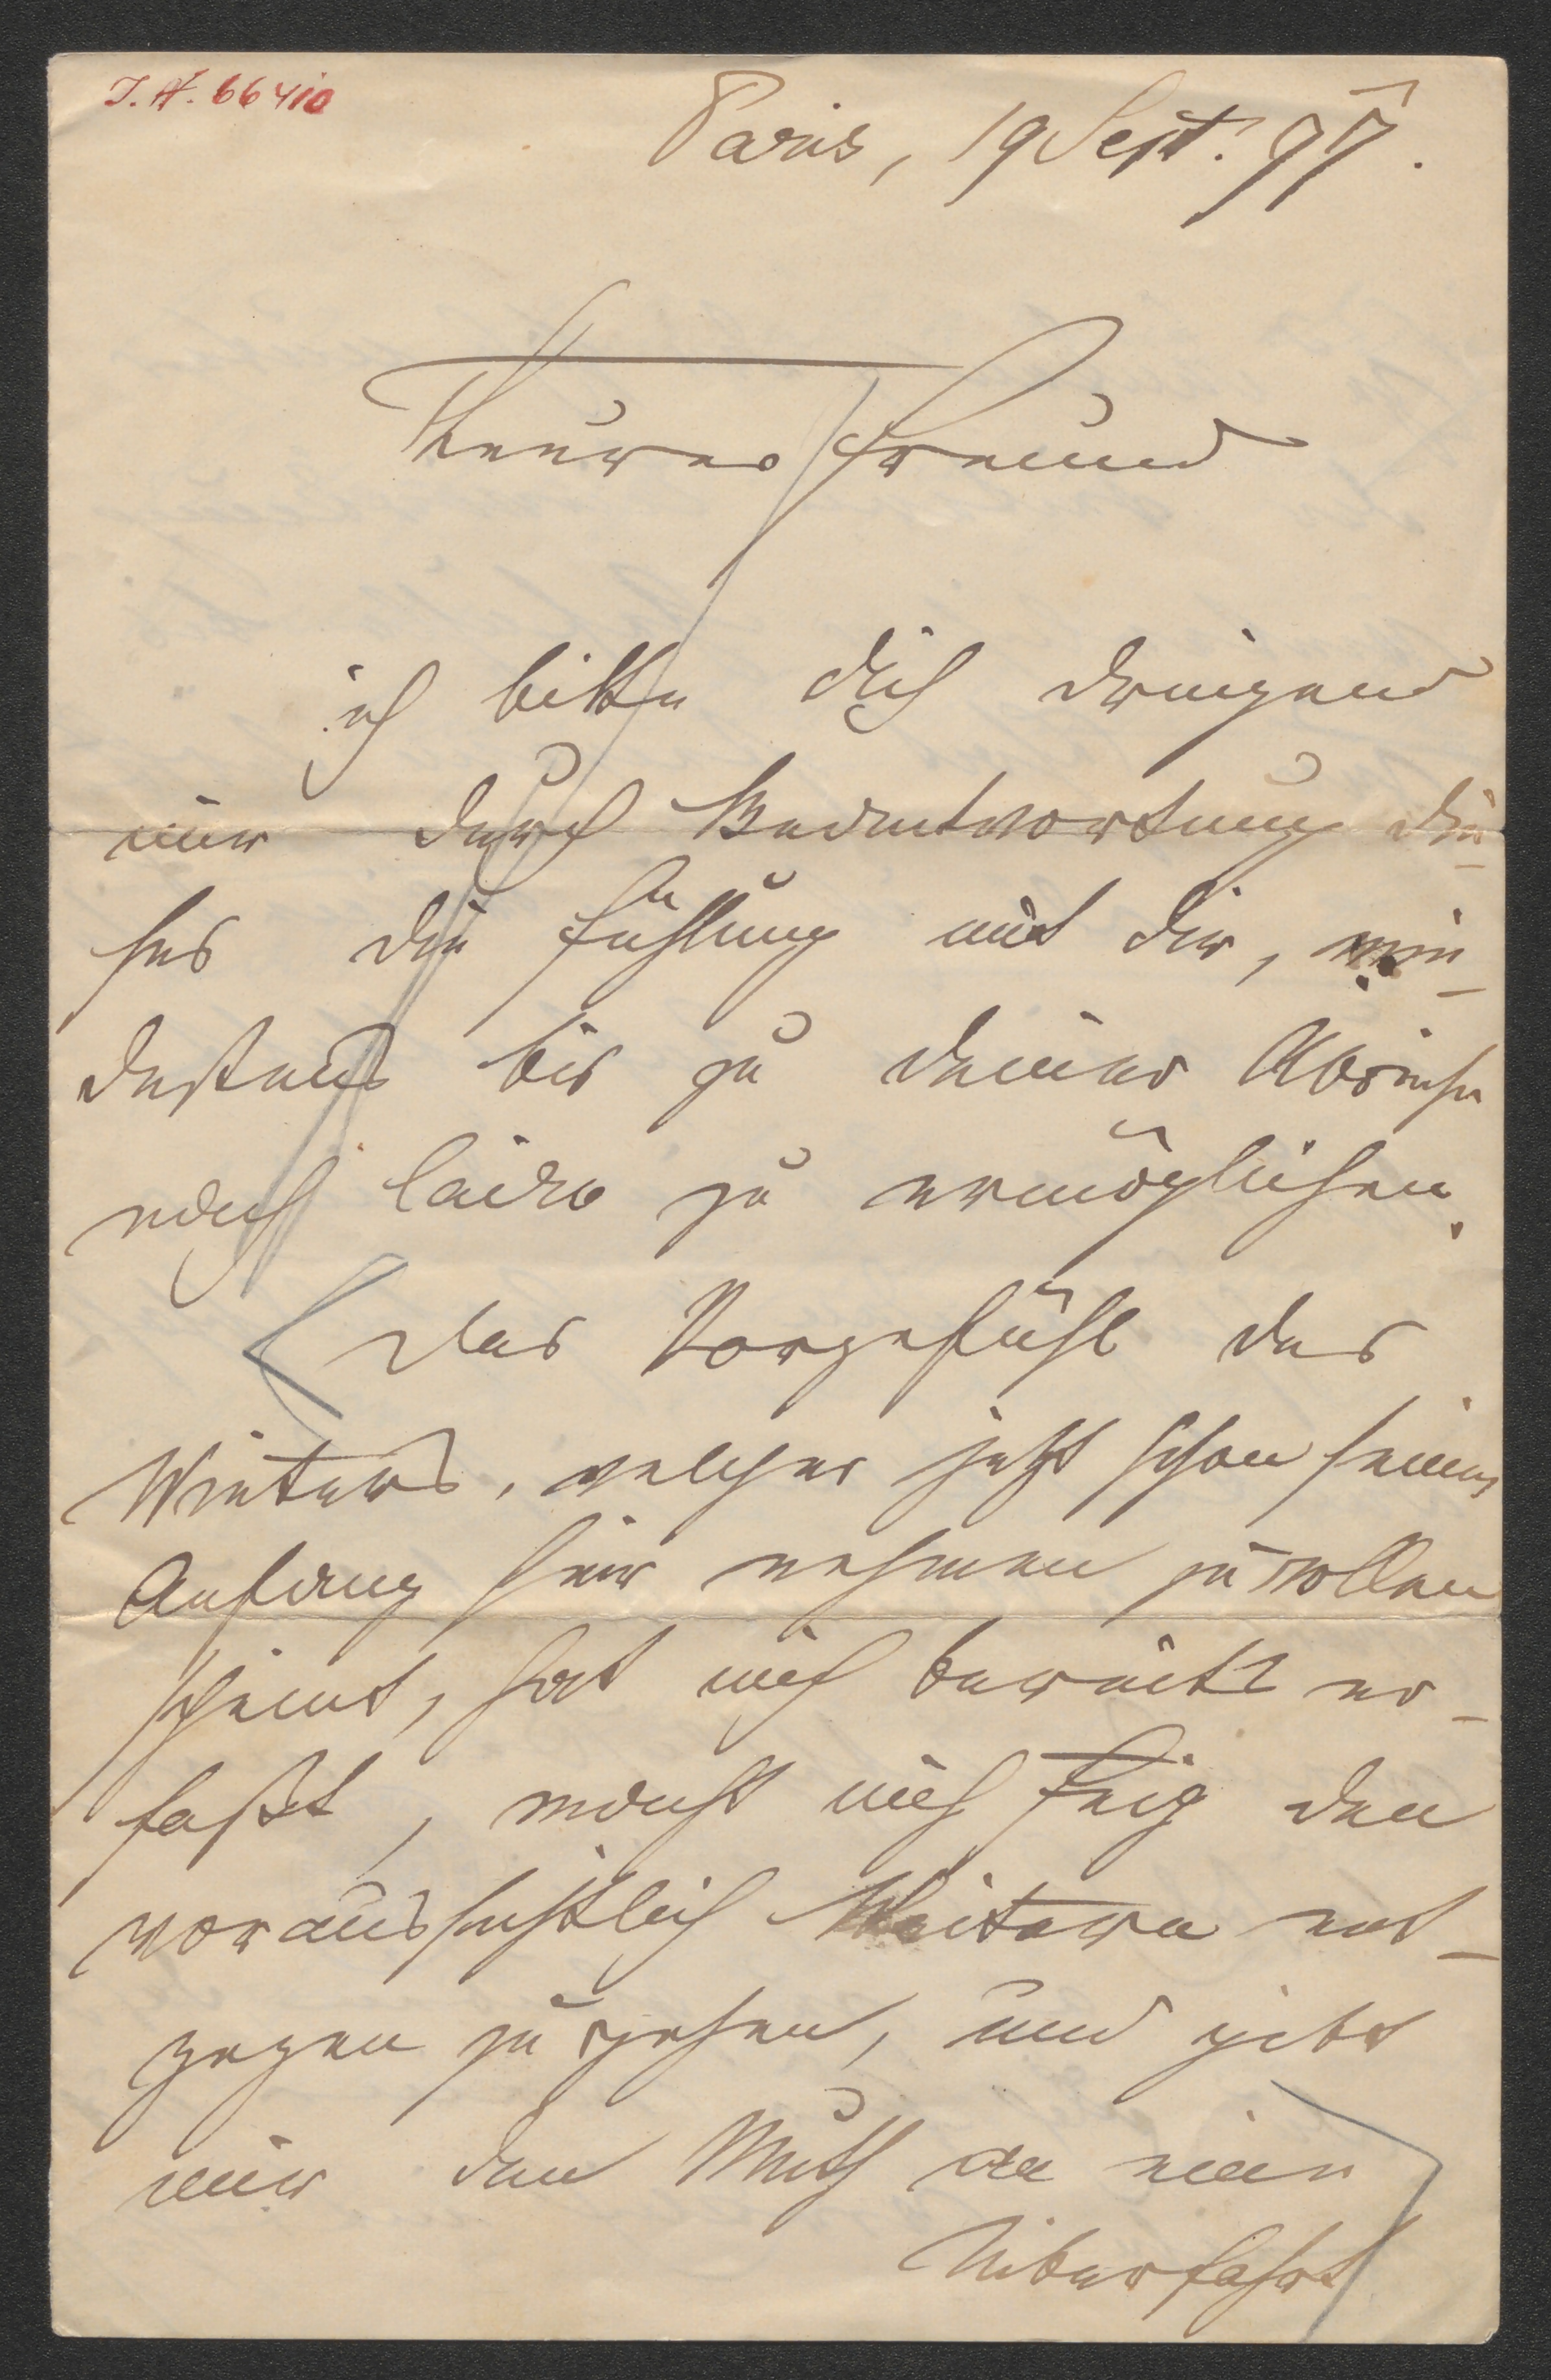 I.N. 66410
Paris, 19 Sept. 97.
Theurer Freund
ich bitte dich dringend
mir durch Beantwortung die-
ses die Fühlung mit dir, min-
destens bis zu deiner Abreise
nach Cairo zu ermöglichen.
Das Vorgefühl des
Winters, welcher jetzt schon seinen
Anfang hier nehmen zu wollen
scheint, hat mich bereits er-
faßt, macht mich feig dem
voraussichtlich Weiteren ent-
gegen zu gehen, und gibt
mir den Muth an eine
Überfahrt